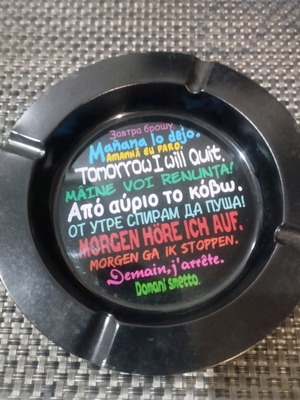 Завтра брошу.
Mañana lo dejo.
AMANHÃ EU PARO.
Tomorrow I will Quit.
MÂINE VOI RENUNȚA!
Από αύριο το κόβω.
ОТ УТРЕ СПИРАМ ДА ПУША!
MORGEN HÖRE ICH AUF.
MORGEN GA IK STOPPEN.
Demain, j'arrête.
Domani smetto.